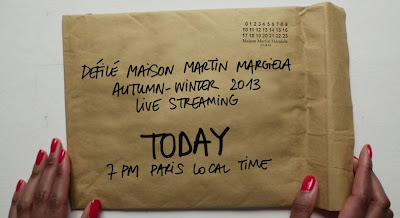 0 1 2 3 4 5 6 7 8 9
10 11 12 13 14 15 16
17 18 19 20 21 22 23
Maison Martin Margiela
PARIS
DÉFILÉ MAISON MARTIN MARGIELA
AUTUMN-WINTER 2013
LIVE STREAMING
TODAY
7 PM PARIS LOCAL TIME